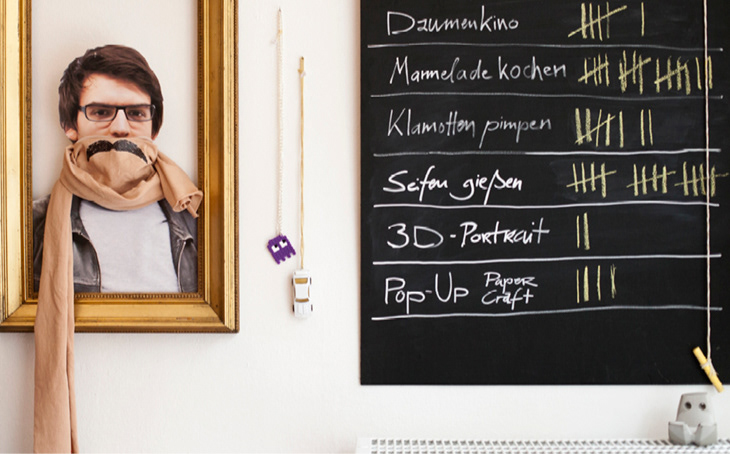 Daumenkino
Marmelade kochen
Klamotten pimpen
Seifen gießen
3D-Portrait
Pop-Up Paper
Craft